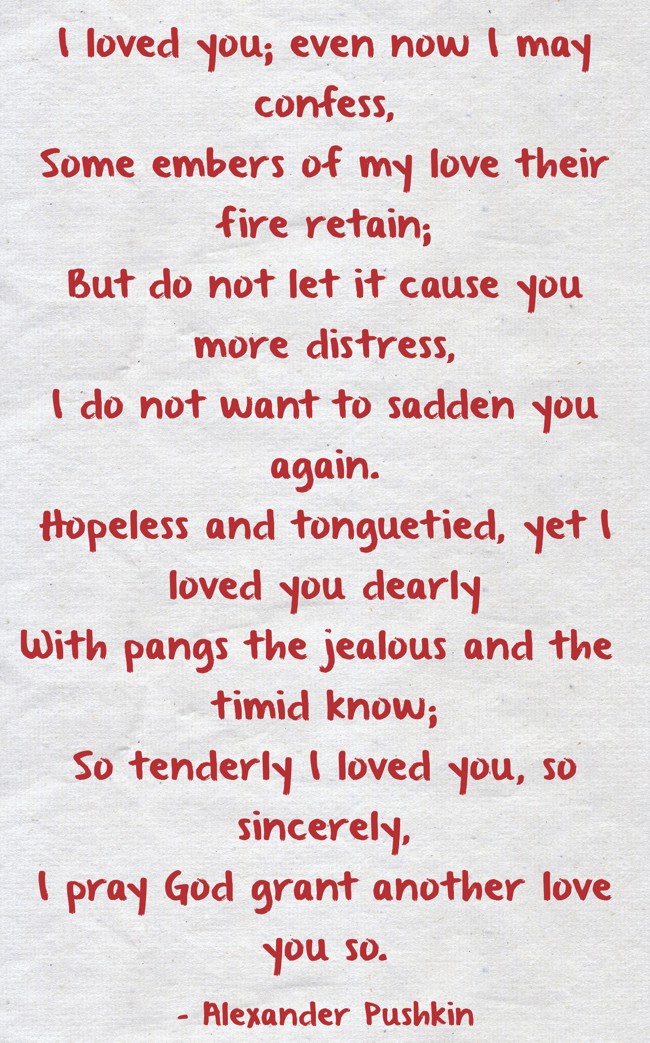 I loved you; even now I may
confess,
Some embers of my love their
fire retain;
But do not let it cause you
more distress,
I do not want to sadden you
again.
Hopeless and tonguetied, yet I
loved you dearly
With pangs the jealous and the
timid know;
So tenderly I loved you, so
sincerely,
I pray God grant another love
you so.
- Alexander Pushkin